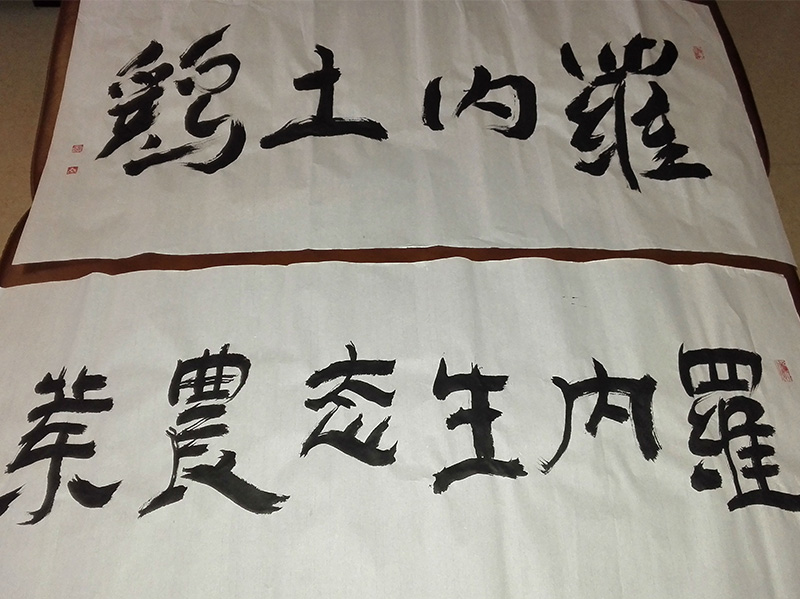 羅内土鷄
羅内生态農業